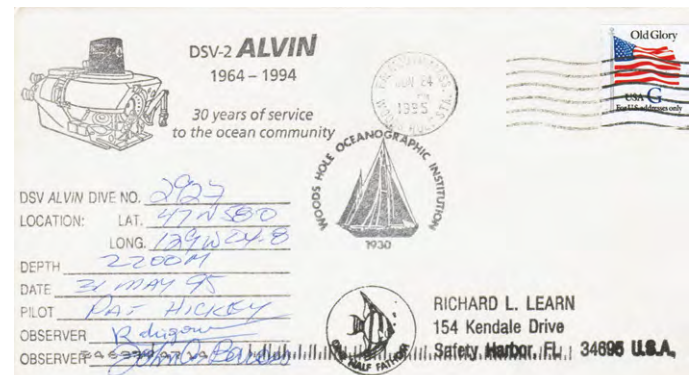 DSV-2 ALVIN
1964 – 1994
30 years of service
to the ocean community
1995
Old Glory
USA G
For U.S. addresses only
WOODS HOLE OCEANOGRAPHIC INSTITUTION
1930
DSV ALVIN DIVE NO. 2927
LOCATION: LAT.
LONG.
DEPTH 2200M
DATE MAY 95
PILOT PAT HICKEY
OBSERVER
OBSERVER
HALF FATHOM
RICHARD L. LEARN
154 Kendale Drive
Safety Harbor, FL 34695 U.S.A.